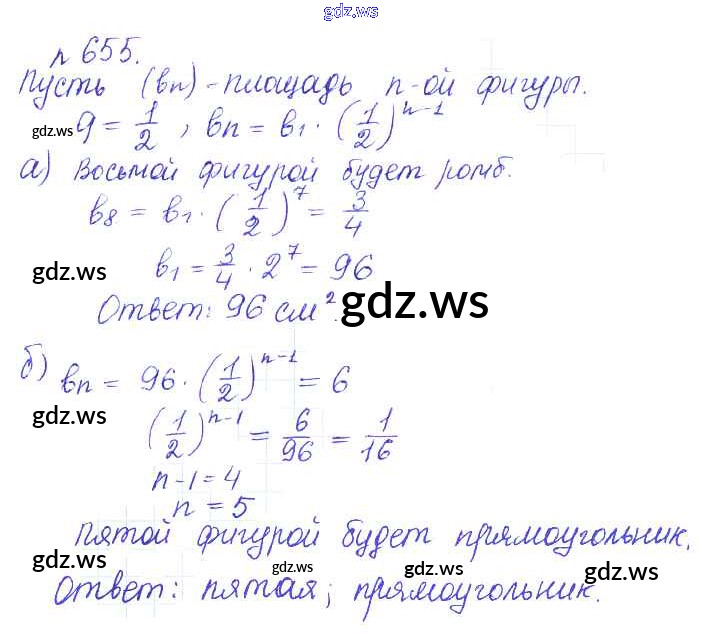 gdz.ws
n 655.
Пусть (вn) - площадь n-ой фигуры.
gdz.ws q = 1/2, вn = в1 · (1/2)^n-1
а) Восьмой фигурой будет ромб.
в8 = в1 · (1/2)^7 = 3/4
gdz.ws в1 = 3/4 · 2^7 = 96
Ответ: 96 см². gdz.ws
б) вn = 96 · (1/2)^n-1 = 6
gdz.ws (1/2)^n-1 = 6/96 = 1/16
n-1 = 4
n = 5
Пятой фигурой будет прямоугольник.
gdz.ws gdz.ws gdz.ws gdz.ws
Ответ: пятая; прямоугольник.